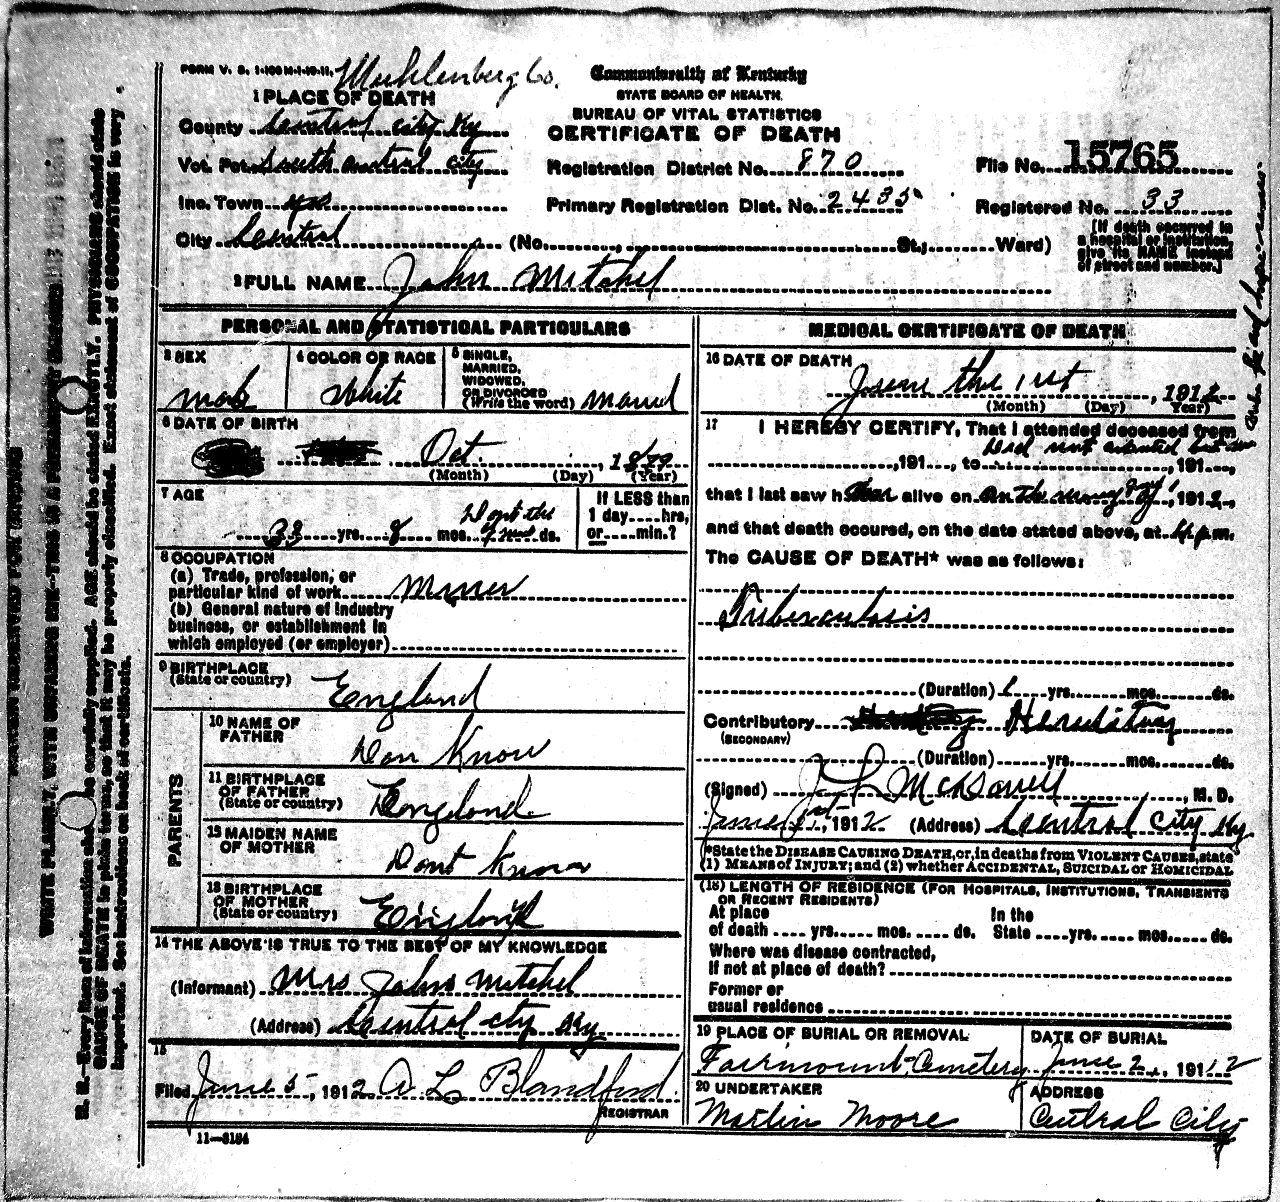 FORM V. S. 1-100 M-1-19-11, Muhlenberg Co.
Commonwealth of Kentucky
STATE BOARD OF HEALTH.
BUREAU OF VITAL STATISTICS
CERTIFICATE OF DEATH
1 PLACE OF DEATH
County Central city Ky
Vot. Pct. South Central city
Inc. Town yes
City Central (No. St.; Ward)
Registration District No. 870
Primary Registration Dist. No. 2435
File No. 15765
Registered No. 33
[If death occurred in
a hospital or institution,
give its NAME instead
of street and number.]
2 FULL NAME John Mitchel
PERSONAL AND STATISTICAL PARTICULARS
3 SEX
Male
4 COLOR OR RACE
White
5 SINGLE,
MARRIED,
WIDOWED,
OR DIVORCED
(Write the word) Married
6 DATE OF BIRTH
Oct. , 1879
(Month) (Day) (Year)
7 AGE
33 yrs. 8 mos. ds.
If LESS than
1 day....hrs,
or....min.?
8 OCCUPATION
(a) Trade, profession, or
particular kind of work Miner
(b) General nature of industry
business, or establishment in
which employed (or employer)
9 BIRTHPLACE
(State or country) England
PARENTS
10 NAME OF
FATHER
Don Know
11 BIRTHPLACE
OF FATHER
(State or country) England
12 MAIDEN NAME
OF MOTHER
Dont Know
13 BIRTHPLACE
OF MOTHER
(State or country) England
14 THE ABOVE IS TRUE TO THE BEST OF MY KNOWLEDGE
(Informant) Mrs John Mitchel
(Address) Central city Ky
15
Filed June 5 , 1912 A L Blandford
REGISTRAR
11-3184
MEDICAL CERTIFICATE OF DEATH
16 DATE OF DEATH
June the 1st , 1912
(Month) (Day) (Year)
17 I HEREBY CERTIFY, That I attended deceased from
Did not attend
, 191 , to , 191 ,
that I last saw h alive on , 1912,
and that death occured, on the date stated above, at 4 p m.
The CAUSE OF DEATH* was as follows:
Tuberculosis
(Duration) 1 yrs. mos. ds.
Contributory Hereditary
(SECONDARY)
(Duration) yrs. mos. ds.
(Signed) J L McDowell , M. D.
June 1st , 1912 (Address) Central City Ky
*State the DISEASE CAUSING DEATH, or, in deaths from VIOLENT CAUSES, state
(1) MEANS OF INJURY; and (2) whether ACCIDENTAL, SUICIDAL or HOMICIDAL
(18) LENGTH OF RESIDENCE (FOR HOSPITALS, INSTITUTIONS, TRANSIENTS
OR RECENT RESIDENTS)
At place In the
of death .... yrs. .... mos. .... ds. State ....yrs. .... mos. .... ds.
Where was disease contracted,
If not at place of death?
Former or
usual residence
19 PLACE OF BURIAL OR REMOVAL
Fairmount Cemetery
DATE OF BURIAL
June 2, 1912
20 UNDERTAKER
Martin Moore
ADDRESS
Central City
WRITE PLAINLY, WITH UNFADING INK—THIS IS A PERMANENT RECORD
N. B.—Every item of information should be carefully supplied. AGE should be stated EXACTLY. PHYSICIANS should state
CAUSE OF DEATH in plain terms, so that it may be properly classified. Exact statement of OCCUPATION is very
important. See instructions on back of certificate.